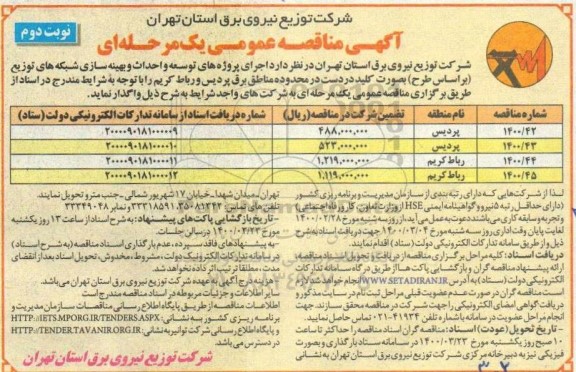 شرکت توزیع نیروی برق استان تهران
نوبت دوم
آگهی مناقصه عمومی یک مرحله‌ای
شرکت توزیع نیروی برق استان تهران در نظر دارد اجرای پروژه های توسعه و احداث و بهینه سازی شبکه های توزیع
(براساس طرح) بصورت کلید در دست در محدوده مناطق برق پردیس و رباط کریم را با توجه به شرایط مندرج در اسناد از
طریق برگزاری مناقصه عمومی یک مرحله ای به شرکت های واجد شرایط به شرح ذیل واگذار نماید.
شماره مناقصه نام منطقه تضمین شرکت در مناقصه (ریال) شماره دریافت اسناد از سامانه تدارکات الکترونیکی دولت (ستاد)
۱۴۰۰/۴۲ پردیس ۴۸۸,۰۰۰,۰۰۰ ۲۰۰۰۰۹۰۱۸۱۰۰۰۰۰۹
۱۴۰۰/۴۳ پردیس ۵۲۳,۰۰۰,۰۰۰ ۲۰۰۰۰۹۰۱۸۱۰۰۰۰۱۰
۱۴۰۰/۴۴ رباط کریم ۱,۲۱۹,۰۰۰,۰۰۰ ۲۰۰۰۰۹۰۱۸۱۰۰۰۰۱۱
۱۴۰۰/۴۵ رباط کریم ۱,۱۱۹,۰۰۰,۰۰۰ ۲۰۰۰۰۹۰۱۸۱۰۰۰۰۱۲
لذا از شرکت‌هایی که دارای رتبه بندی از سازمان مدیریت و برنامه ریزی کشور
(دارای حداقل رتبه ۵ نیرو و گواهینامه ایمنی HSE از وزارت تعاون، کار و رفاه اجتماعی)
و تجربه و سابقه کاری می‌باشند دعوت به عمل می آید، از روز سه شنبه مورخ ۱۴۰۰/۰۲/۲۸
لغایت پایان وقت اداری روز سه شنبه مورخ ۱۴۰۰/۰۳/۰۴ جهت دریافت اسناد به شرح
ذیل و از طریق سامانه تدارکات الکترونیکی دولت (ستاد) اقدام نمایند.
دریافت اسناد: کلیه مراحل برگزاری مناقصه از دریافت و تحویل اسناد مناقصه تا
ارائه پیشنهاد مناقصه گران و بازگشایی پاکت ها از طریق درگاه سامانه تدارکات
الکترونیکی دولت (ستاد) به آدرس WWW.SETADIRAN.IR انجام خواهد شد و لازم
است مناقصه گران در صورت عدم عضویت قبلی مراحل ثبت نام در سایت مذکور و
دریافت گواهی امضای الکترونیکی را جهت شرکت در مناقصه محقق سازند. جهت
انجام مراحل عضویت در سامانه با شماره تلفن ۴۱۹۳۴-۰۲۱ تماس حاصل نمایید.
- تاریخ تحویل (عودت) اسناد: مناقصه گران اسناد مناقصه را حداکثر تا ساعت
۱۰ صبح روز یکشنبه مورخ ۱۴۰۰/۰۳/۲۳ در سامانه ستاد بارگذاری و بصورت
فیزیکی نیز به دبیرخانه مرکزی شرکت توزیع نیروی برق استان تهران به نشانی
تهران- میدان شهدا- خیابان ۱۷ شهریور شمالی- جنب مترو تحویل نمایند
تلفن های تماس: ۳۵۰۸۱۳۴۲ و نمابر ۳۳۳۴۹۰۴۸
- تاریخ بازگشایی پاکت های پیشنهاد: به شرح اسناد از ساعت ۱۳ روز یکشنبه
مورخ ۱۴۰۰/۰۳/۲۳ در سالن جلسات.
- به پیشنهادهای فاقد سپرده، عدم بارگذاری اسناد مناقصه (به شرح اسناد)
در سامانه تدارکات الکترونیک دولت، مشروط، مخدوش، تحویل اسناد بعد از انقضای
مدت، مطلقا ترتیب اثر داده نخواهد شد.
- هزینه درج آگهی بعهده شرکت توزیع نیروی برق استان تهران می باشد.
سایر اطلاعات و جزئیات مربوطه در اسناد مناقصه مندرج است
اطلاعات مناقصه از طریق پایگاه اطلاع رسانی مناقصات سازمان مدیریت و
برنامه ریزی کشور به نشانی: HTTP://IETS.MPORG.IR/TENDERS.ASPX
و پایگاه اطلاع رسانی شرکت توانیر به نشانی: HTTP://TENDER.TAVANIR.ORG.IR
در دسترس می باشد.
شرکت توزیع نیروی برق استان تهران